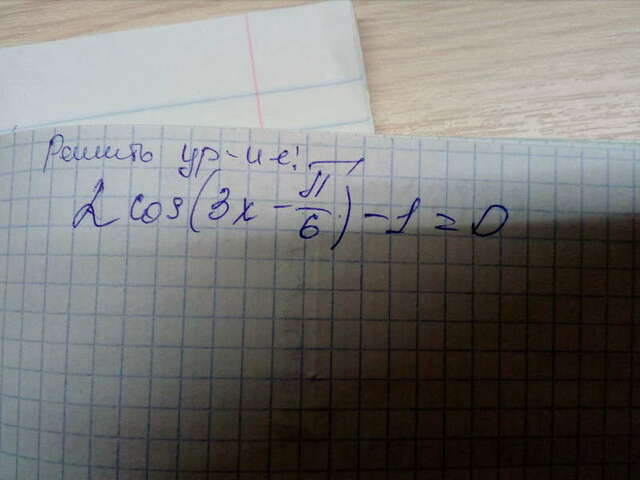 Решить ур-и-е:
2 cos(3x - π/6) - 1 = 0